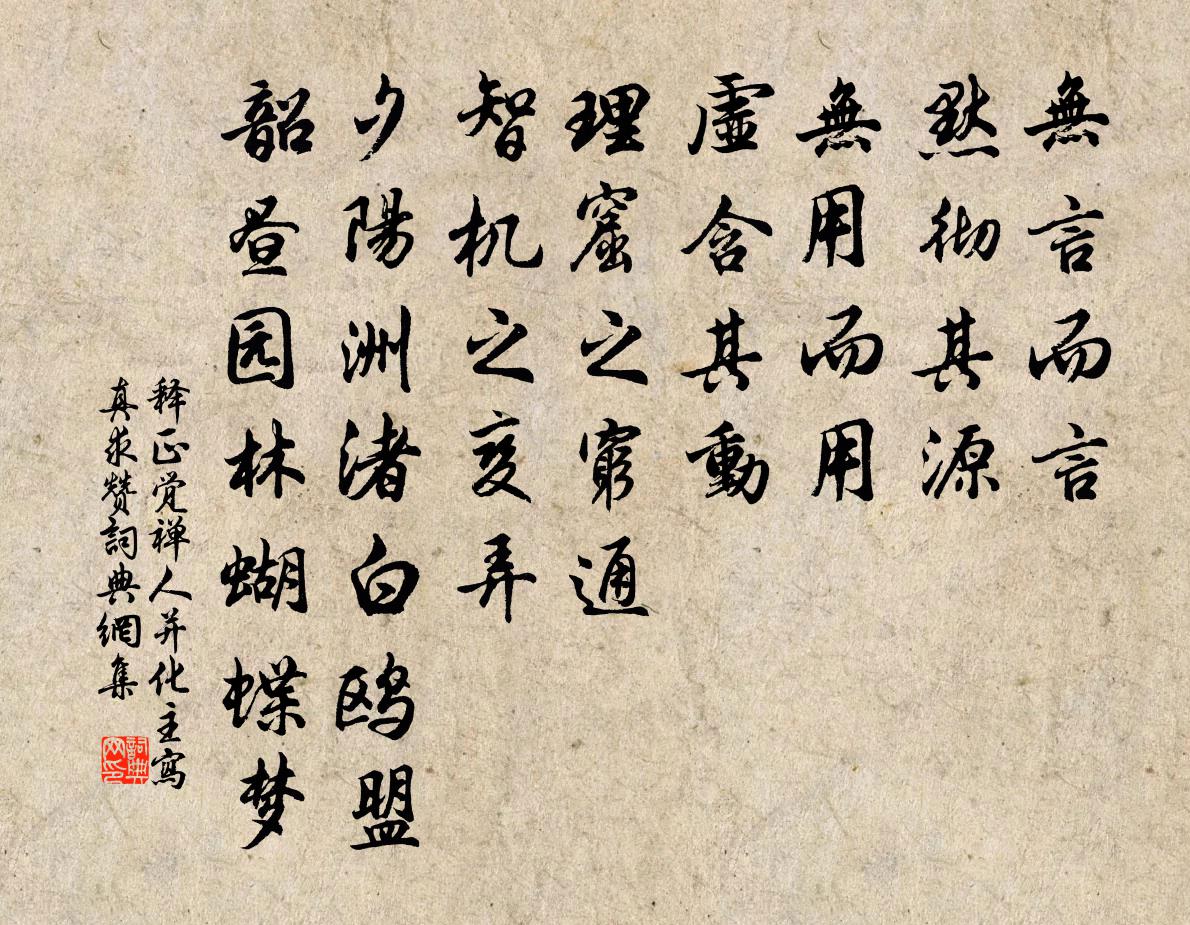 無言而言
默彻其源
無用而用
虛含其動
理窟之窮通
智机之变弄
夕陽洲渚白鸥盟
韶昼园林蝴蝶梦
释正觉禅人并化主寫
真求赞詞典網集
詞典网印